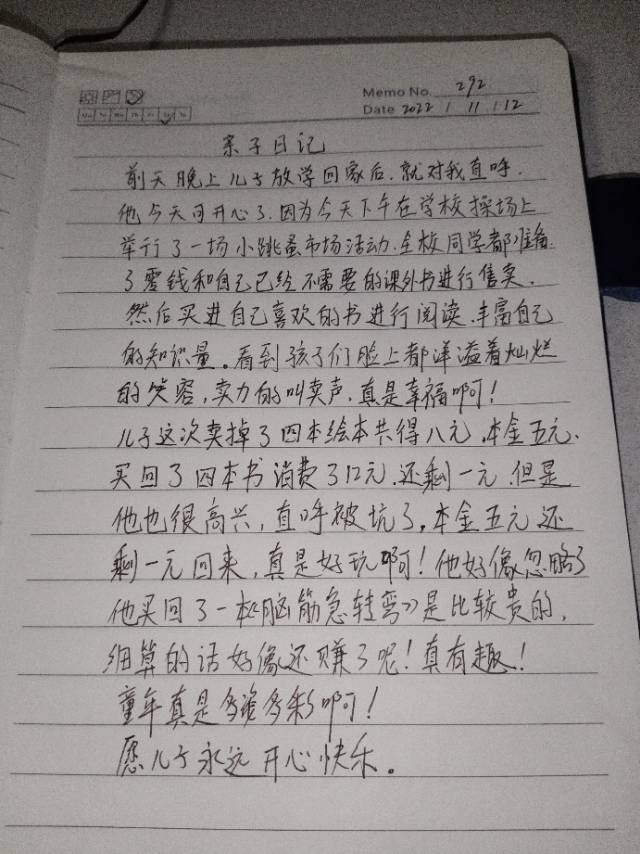 Memo No. 292
Date 2022 / 11 / 12
亲子日记
前天晚上儿子放学回家后,就对我直呼,
他今天可开心了,因为今天下午在学校操场上
举行了一场小跳蚤市场活动,全校同学都准备
了零钱和自己已经不需要的课外书进行售卖,
然后买进自己喜欢的书进行阅读,丰富自己
的知识量。看到孩子们脸上都洋溢着灿烂
的笑容,卖力的叫卖声,真是幸福啊!
儿子这次卖掉了四本绘本共得八元,本金五元,
买回了四本书消费了12元,还剩一元,但是
他也很高兴,直呼被坑了,本金五元还
剩一元回来,真是好玩啊!他好像忽略了
他买回了一本《脑筋急转弯》是比较贵的,
细算的话好像还赚了呢!真有趣!
童年真是多姿多彩啊!
愿儿子永远开心快乐。